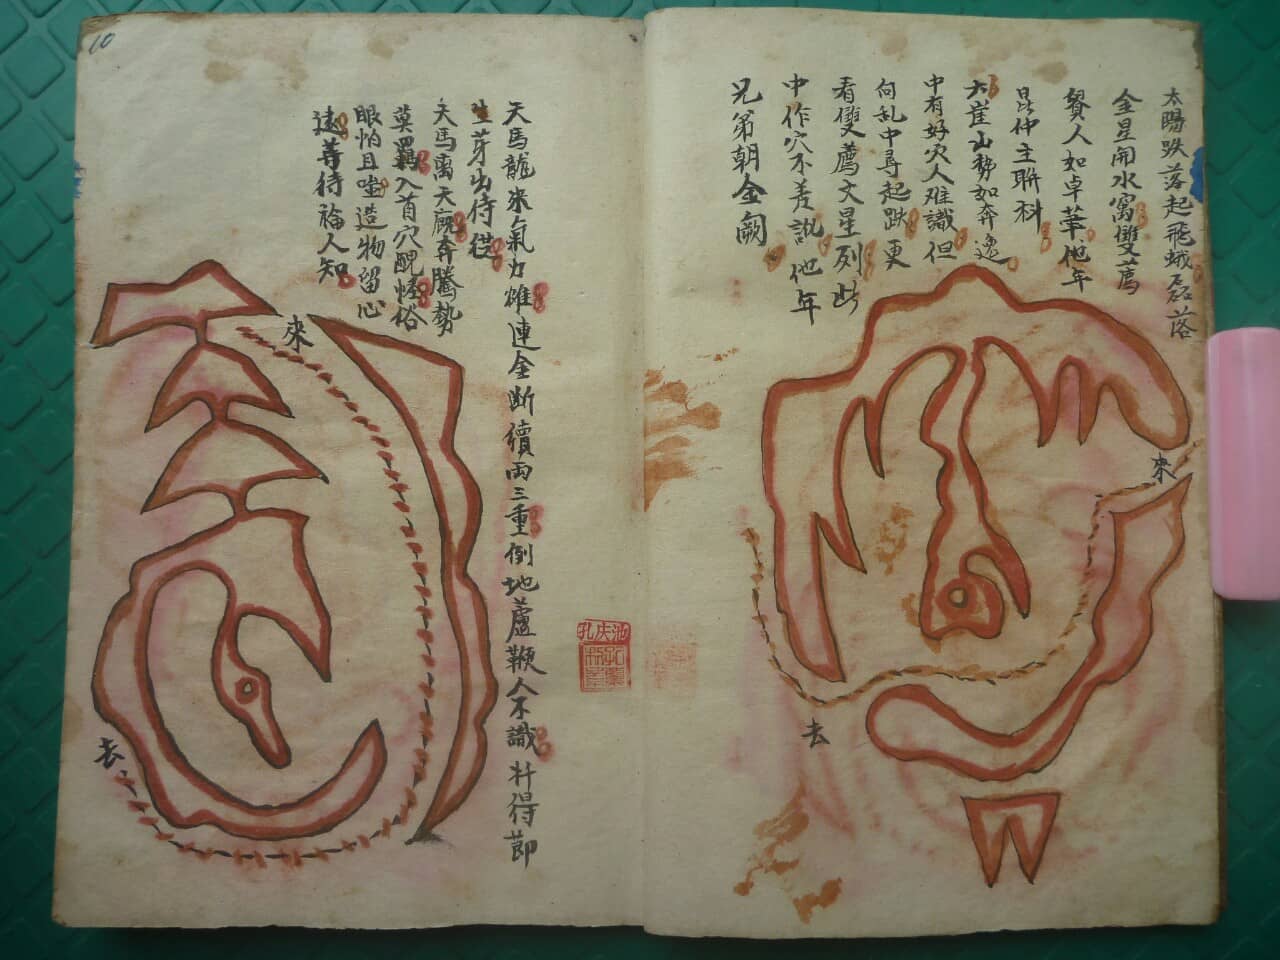 太陽跌落起飛蛾磊落
金星開水窩雙薦
賢人如卓華他年
昆仲主聯科
大崖山勢如奔逸
中有好穴人难識但
向乱中尋起跌更
看雙薦文星列此
中作穴不差訛他年
兄弟朝金闕
來
去
天馬龍来氣力雄連金断續兩三重倒地蘆鞭人不識杆得節
生芽出侍從
天馬离天廐奔騰勢
莫羈入首穴醜怪俗
眼怕且嗤造物留心
遠等待福人知
來
去
10